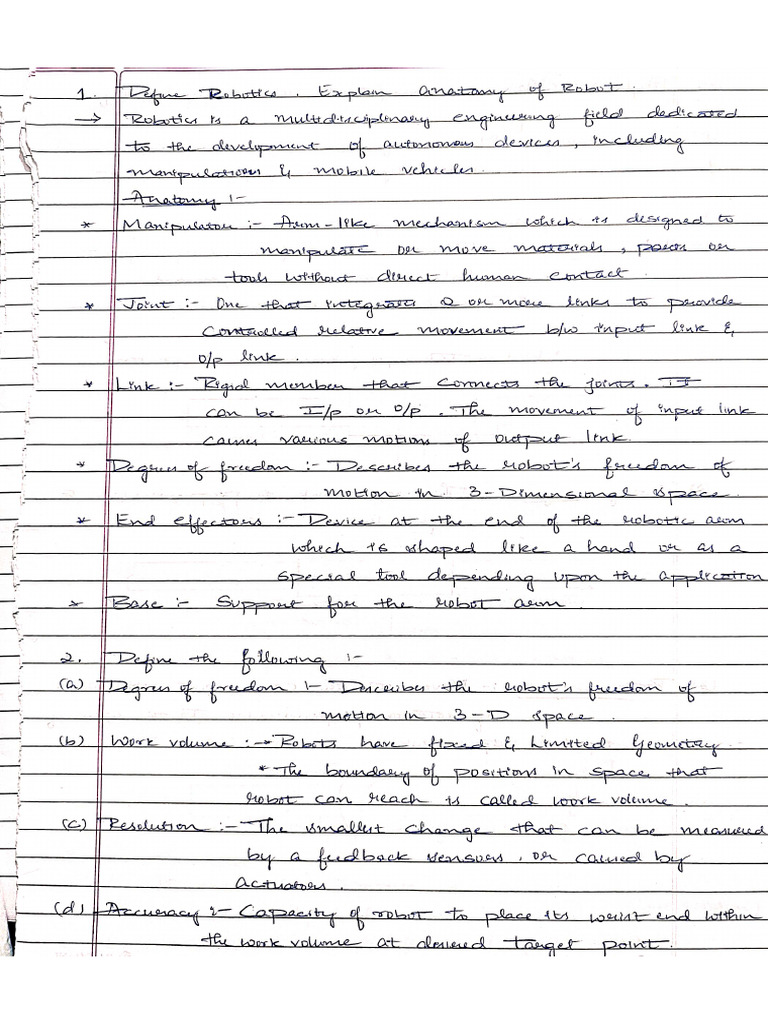 1. Define Robotics. Explain anatomy of Robot.
→ Robotics is a multidisciplinary engineering field dedicated
to the development of autonomous devices, including
manipulations & mobile vehicles.
Anatomy :-
* Manipulator :- Arm-like mechanism which is designed to
manipulate or move materials, parts or
tools without direct human contact.
* Joint :- One that integrates 2 or more links to provide
controlled relative movement b/w input link &
o/p link.
* Link :- Rigid member that connects the joints. It
can be I/p or o/p. The movement of input link
causes various motions of output link.
* Degree of freedom :- Describes the robot's freedom of
motion in 3-Dimensional space
* End effectors :- Device at the end of the robotic arm
which is shaped like a hand or as a
special tool depending upon the application
* Base :- Support for the robot arm.
2. Define the following :-
(a) Degree of freedom :- Describes the robot's freedom of
motion in 3-D space.
(b) Work volume :- * Robots have fixed & Limited Geometry
* The boundary of positions in space that
robot can reach is called work volume.
(c) Resolution :- The smallest change that can be measured
by a feedback sensors. or caused by
actuators.
(d) Accuracy :- Capacity of robot to place its wrist end within
the work volume at desired target point.